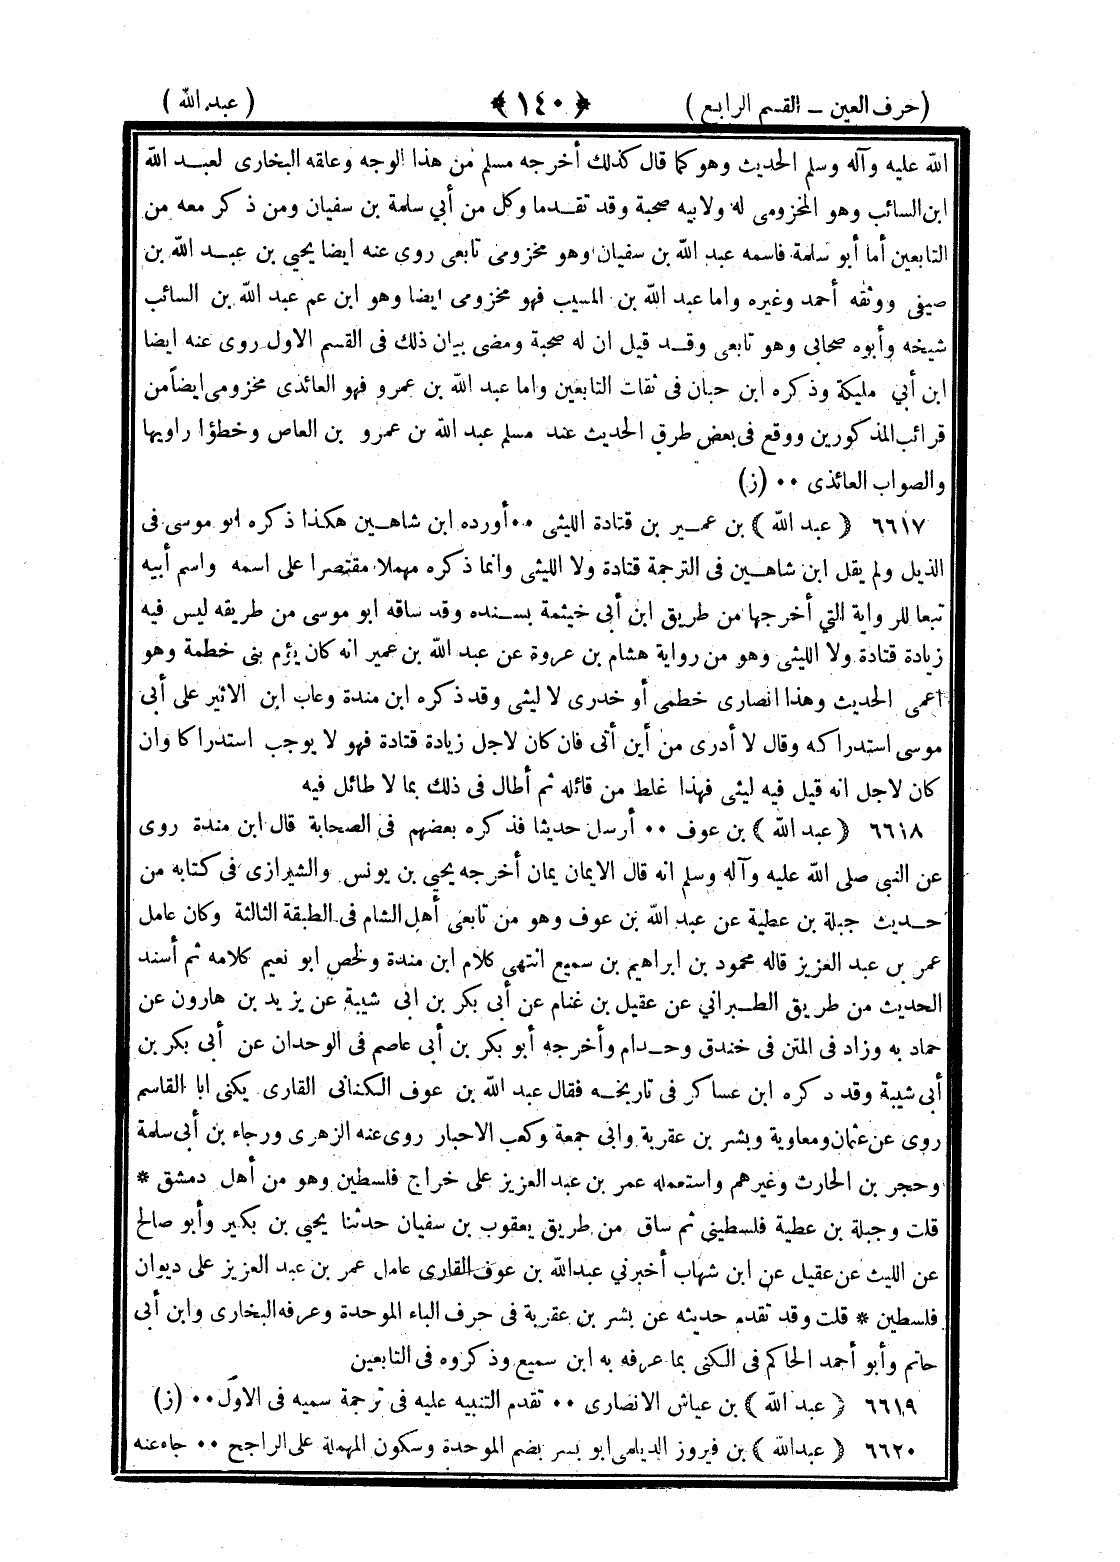 (حرف العين ــ القسم الرابع) ﴿١٤٠﴾ (عبد الله)
الله عليه وآله وسلم الحديث وهو كما قال كذلك أخرجه مسلم من هذا الوجه وعلقه البخارى لعبد الله
ابن السائب وهو المخزومى له ولابيه صحبة وقد تقدما وكل من أبي سلمة بن سفيان ومن ذكر معه من
التابعين أما أبو سلمة فاسمه عبد الله بن سفيان وهو مخزومى تابعى روى عنه ايضا يحيي بن عبد الله بن
صيفى ووثقه أحمد وغيره واما عبد الله بن المسيب فهو مخزومى ايضا وهو ابن عم عبد الله بن السائب
شيخه وأبوه صحابى وهو تابعى وقد قيل ان له صحبة ومضى بيان ذلك فى القسم الاول روى عنه ايضا
ابن أبي مليكة وذكره ابن حبان فى ثقات التابعين واما عبد الله بن عمرو فهو العائذى مخزومى ايضاً من
قرائب المذكورين ووقع فى بعض طرق الحديث عند مسلم عبد الله بن عمرو بن العاص وخطؤا راويها
والصواب العائذى ٠٠ (ز)
٦٦١٧ ﴿ عبد الله ﴾ بن عمير بن قتادة الليثى ٠٠ أورده ابن شاهين هكذا ذكره ابو موسى فى
الذيل ولم يقل ابن شاهين فى الترجمة قتادة ولا الليثى وانما ذكره مهملا مقتصرا على اسمه واسم أبيه
تبعا للرواية التي أخرجها من طريق ابن أبى خيثمة بسنده وقد ساقه ابو موسى من طريقه ليس فيه
زيادة قتادة ولا الليثى وهو من رواية هشام بن عروة عن عبد الله بن عمير انه كان يؤم بنى خطمة وهو
اعمى الحديث وهذا انصارى خطمى أو خدرى لا ليثى وقد ذكره ابن مندة وعاب ابن الاثير على أبى
موسى استدراكه وقال لا أدرى من أين أتى فان كان لاجل زيادة قتادة فهو لا يوجب استدراكا وان
كان لاجل انه قيل فيه ليثى فهذا غلط من قائله ثم أطال فى ذلك بما لا طائل فيه
٦٦١٨ ﴿ عبد الله ﴾ بن عوف ٠٠ أرسل حديثا فذكره بعضهم فى الصحابة قال ابن مندة روى
عن النبى صلى الله عليه وآله وسلم انه قال الايمان يمان أخرجه يحيي بن يونس والشيرازى فى كتابه من
حديث جبلة بن عطية عن عبد الله بن عوف وهو من تابعى أهل الشام فى الطبقة الثالثة وكان عامل
عمر بن عبد العزيز قاله محمود بن ابراهيم بن سميع انتهى كلام ابن مندة ولخص ابو نعيم كلامه ثم أسند
الحديث من طريق الطبراني عن عقيل بن غنام عن أبى بكر بن ابى شيبة عن يزيد بن هارون عن
حماد به وزاد فى المتن فى خندق وحدام وأخرجه أبو بكر بن أبى عاصم فى الوحدان عن أبى بكر بن
أبى شيبة وقد ذكره ابن عساكر فى تاريخه فقال عبد الله بن عوف الكنانى القارى يكنى ابا القاسم
روى عن عثمان ومعاوية وبشر بن عقربة وابى جمعة وكعب الاحبار روى عنه الزهرى ورجاء بن أبى سلمة
وحجر بن الحارث وغيرهم واستعمله عمر بن عبد العزيز على خراج فلسطين وهو من أهل دمشق *
قلت وجبلة بن عطية فلسطيني ثم ساق من طريق يعقوب بن سفيان حدثنا يحيي بن بكير وأبو صالح
عن الليث عن عقيل عن ابن شهاب أخبرني عبدالله بن عوف القارى عامل عمر بن عبد العزيز على ديوان
فلسطين * قلت وقد تقدم حديثه عن بشر بن عقربة فى حرف الباء الموحدة وعرفه البخارى وابن أبى
حاتم وأبو أحمد الحاكم فى الكنى بما عرفه به ابن سميع وذكروه فى التابعين
٦٦١٩ ﴿ عبد الله ﴾ بن عياش الانصارى ٠٠ تقدم التنبيه عليه فى ترجمة سميه فى الاول ٠٠ (ز)
٦٦٢٠ ﴿ عبدالله ﴾ بن فيروز الديلمى ابو بسر بضم الموحدة وسكون المهملة على الراجح ٠٠ جاء عنه